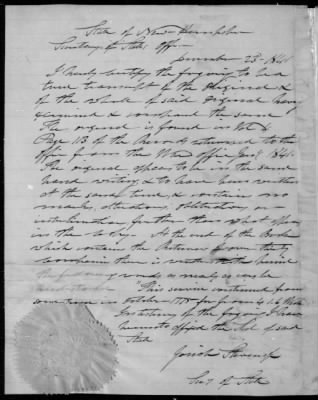 State of New Hampshire
Secretary of State Office
December 23 - 184
I hereby certify the foregoing to be a
true transcript of the Original &
of the whole of said Original having
examined & compared the same
The original is found in Vol
Page 113 of the Records returned to the
office from the War office 184
The original appears to be in the same
hand writing & to have been written
at the same time & contains no
marks, alterations, obliteration or
interlineation further than what appear
in the copy. At the end of the Book
which contains the Returns from
Companies there is written
the following words as nearly as can be
"This service continued from
some time in October 1775 for from 4 to 6 Weeks
In testimony of the foregoing I have
hereunto affixed the Seal of said
State
Josiah Stevens Jr
Secy of State